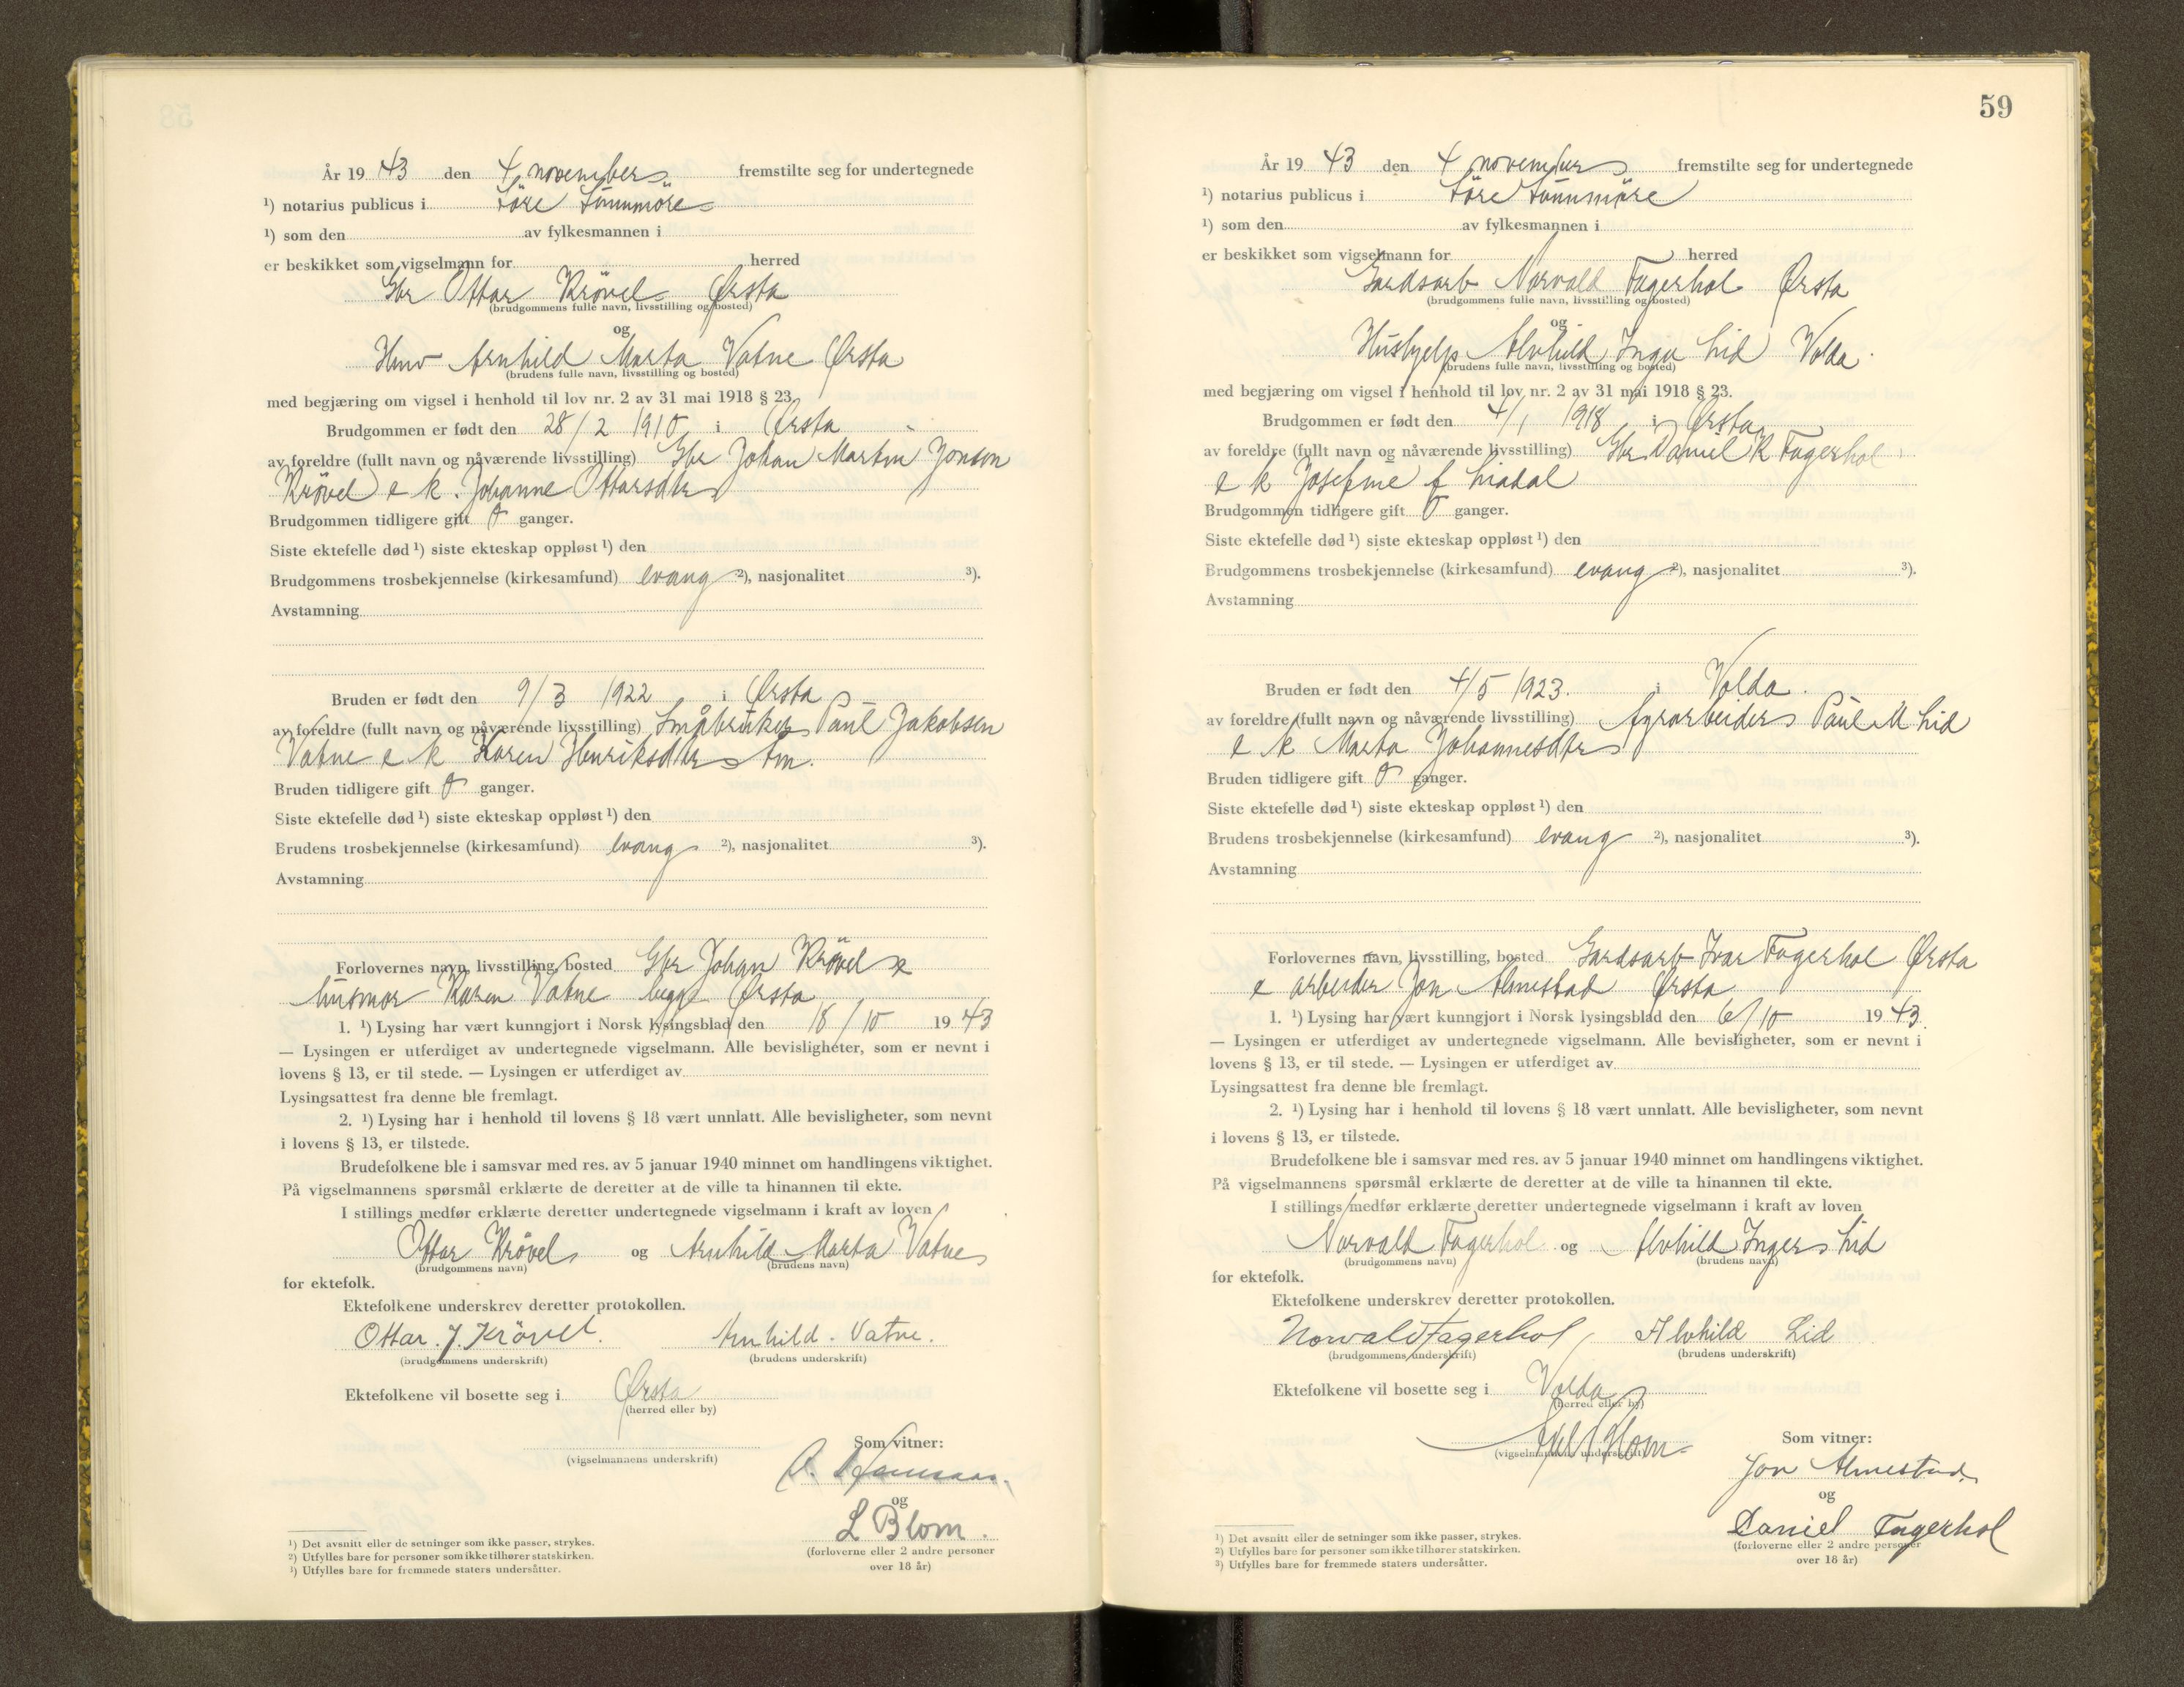 År 19 43 den 4 november fremstilte seg for undertegnede
¹) notarius publicus i Söre Sunnmöre
¹) som den av fylkesmannen i
er beskikket som vigselmann for herred
Gbr Ottar Krövel Ørsta
(brudgommens fulle navn, livsstilling og bosted)
og
Arnhild Marta Vatne Ørsta
(brudens fulle navn, livsstilling og bosted)
med begjæring om vigsel i henhold til lov nr. 2 av 31 mai 1918 § 23.
Brudgommen er født den 28/2 1910 i Ørsta
av foreldre (fullt navn og nåværende livsstilling) Gbr Johan Martin Jonson
Krövel e k. Johanne Ottarsdtr
Brudgommen tidligere gift 0 ganger.
Siste ektefelle død ¹) siste ekteskap oppløst ¹) den
Brudgommens trosbekjennelse (kirkesamfund) evang ²), nasjonalitet ³).
Avstamning
Bruden er født den 9/3 1922 i Ørsta
av foreldre (fullt navn og nåværende livsstilling) Småbruker Paul Jakobsen
Vatne e k Karen Henriksdtr Åm.
Bruden tidligere gift 0 ganger.
Siste ektefelle død ¹) siste ekteskap oppløst ¹) den
Brudens trosbekjennelse (kirkesamfund) evang ²), nasjonalitet ³).
Avstamning
Forlovernes navn, livsstilling, bosted Gbr Johan Krövel e
husmor Karen Vatne begge Ørsta
1. ¹) Lysing har vært kunngjort i Norsk lysingsblad den 18/10 19 43
— Lysingen er utferdiget av undertegnede vigselmann. Alle bevisligheter, som er nevnt i
lovens § 13, er til stede. — Lysingen er utferdiget av
Lysingsattest fra denne ble fremlagt.
2. ¹) Lysing har i henhold til lovens § 18 vært unnlatt. Alle bevisligheter, som nevnt
i lovens § 13, er tilstede.
Brudefolkene ble i samsvar med res. av 5 januar 1940 minnet om handlingens viktighet.
På vigselmannens spørsmål erklærte de deretter at de ville ta hinannen til ekte.
I stillings medfør erklærte deretter undertegnede vigselmann i kraft av loven
Ottar Krövel og Arnhild Marta Vatne
(brudgommens navn) (brudens navn)
for ektefolk.
Ektefolkene underskrev deretter protokollen.
Ottar. J. Krövel. Arnhild. Vatne.
(brudgommens underskrift) (brudens underskrift)
Ektefolkene vil bosette seg i Ørsta
(herred eller by)
Som vitner:
(vigselmannens underskrift)
og
L Blom.
(forloverne eller 2 andre personer
over 18 år)
¹) Det avsnitt eller de setninger som ikke passer, strykes.
²) Utfylles bare for personer som ikke tilhører statskirken.
³) Utfylles bare for fremmede staters undersåtter.
59
År 19 43 den 4 november fremstilte seg for undertegnede
¹) notarius publicus i Söre Sunnmöre
¹) som den av fylkesmannen i
er beskikket som vigselmann for herred
Gardsarb Norvald Fagerhol Ørsta
(brudgommens fulle navn, livsstilling og bosted)
og
Hushjelp Alvhild Inga Lid Volda.
(brudens fulle navn, livsstilling og bosted)
med begjæring om vigsel i henhold til lov nr. 2 av 31 mai 1918 § 23.
Brudgommen er født den 4/1 1918 i Ørsta
av foreldre (fullt navn og nåværende livsstilling) Gbr Daniel R Fagerhol
e k Josefine f Liadal
Brudgommen tidligere gift 0 ganger.
Siste ektefelle død ¹) siste ekteskap oppløst ¹) den
Brudgommens trosbekjennelse (kirkesamfund) evang ²), nasjonalitet ³).
Avstamning
Bruden er født den 4/5 1923. i Volda.
av foreldre (fullt navn og nåværende livsstilling) Paul M Lid
e k Marta Johannesdtr
Bruden tidligere gift 0 ganger.
Siste ektefelle død ¹) siste ekteskap oppløst ¹) den
Brudens trosbekjennelse (kirkesamfund) evang ²), nasjonalitet ³).
Avstamning
Forlovernes navn, livsstilling, bosted Gardsarb Ivar Fagerhol Ørsta
e arbeider Jon Almestad Ørsta
1. ¹) Lysing har vært kunngjort i Norsk lysingsblad den 6/10 19 43.
— Lysingen er utferdiget av undertegnede vigselmann. Alle bevisligheter, som er nevnt i
lovens § 13, er til stede. — Lysingen er utferdiget av
Lysingsattest fra denne ble fremlagt.
2. ¹) Lysing har i henhold til lovens § 18 vært unnlatt. Alle bevisligheter, som nevnt
i lovens § 13, er tilstede.
Brudefolkene ble i samsvar med res. av 5 januar 1940 minnet om handlingens viktighet.
På vigselmannens spørsmål erklærte de deretter at de ville ta hinannen til ekte.
I stillings medfør erklærte deretter undertegnede vigselmann i kraft av loven
Norvald Fagerhol og Alvhild Inger Lid
(brudgommens navn) (brudens navn)
for ektefolk.
Ektefolkene underskrev deretter protokollen.
Norvald Fagerhol Alvhild Lid
(brudgommens underskrift) (brudens underskrift)
Ektefolkene vil bosette seg i Volda
(herred eller by)
Som vitner:
(vigselmannens underskrift)
Jon Almestad.
og
Daniel Fagerhol
(forloverne eller 2 andre personer
over 18 år)
¹) Det avsnitt eller de setninger som ikke passer, strykes.
²) Utfylles bare for personer som ikke tilhører statskirken.
³) Utfylles bare for fremmede staters undersåtter.